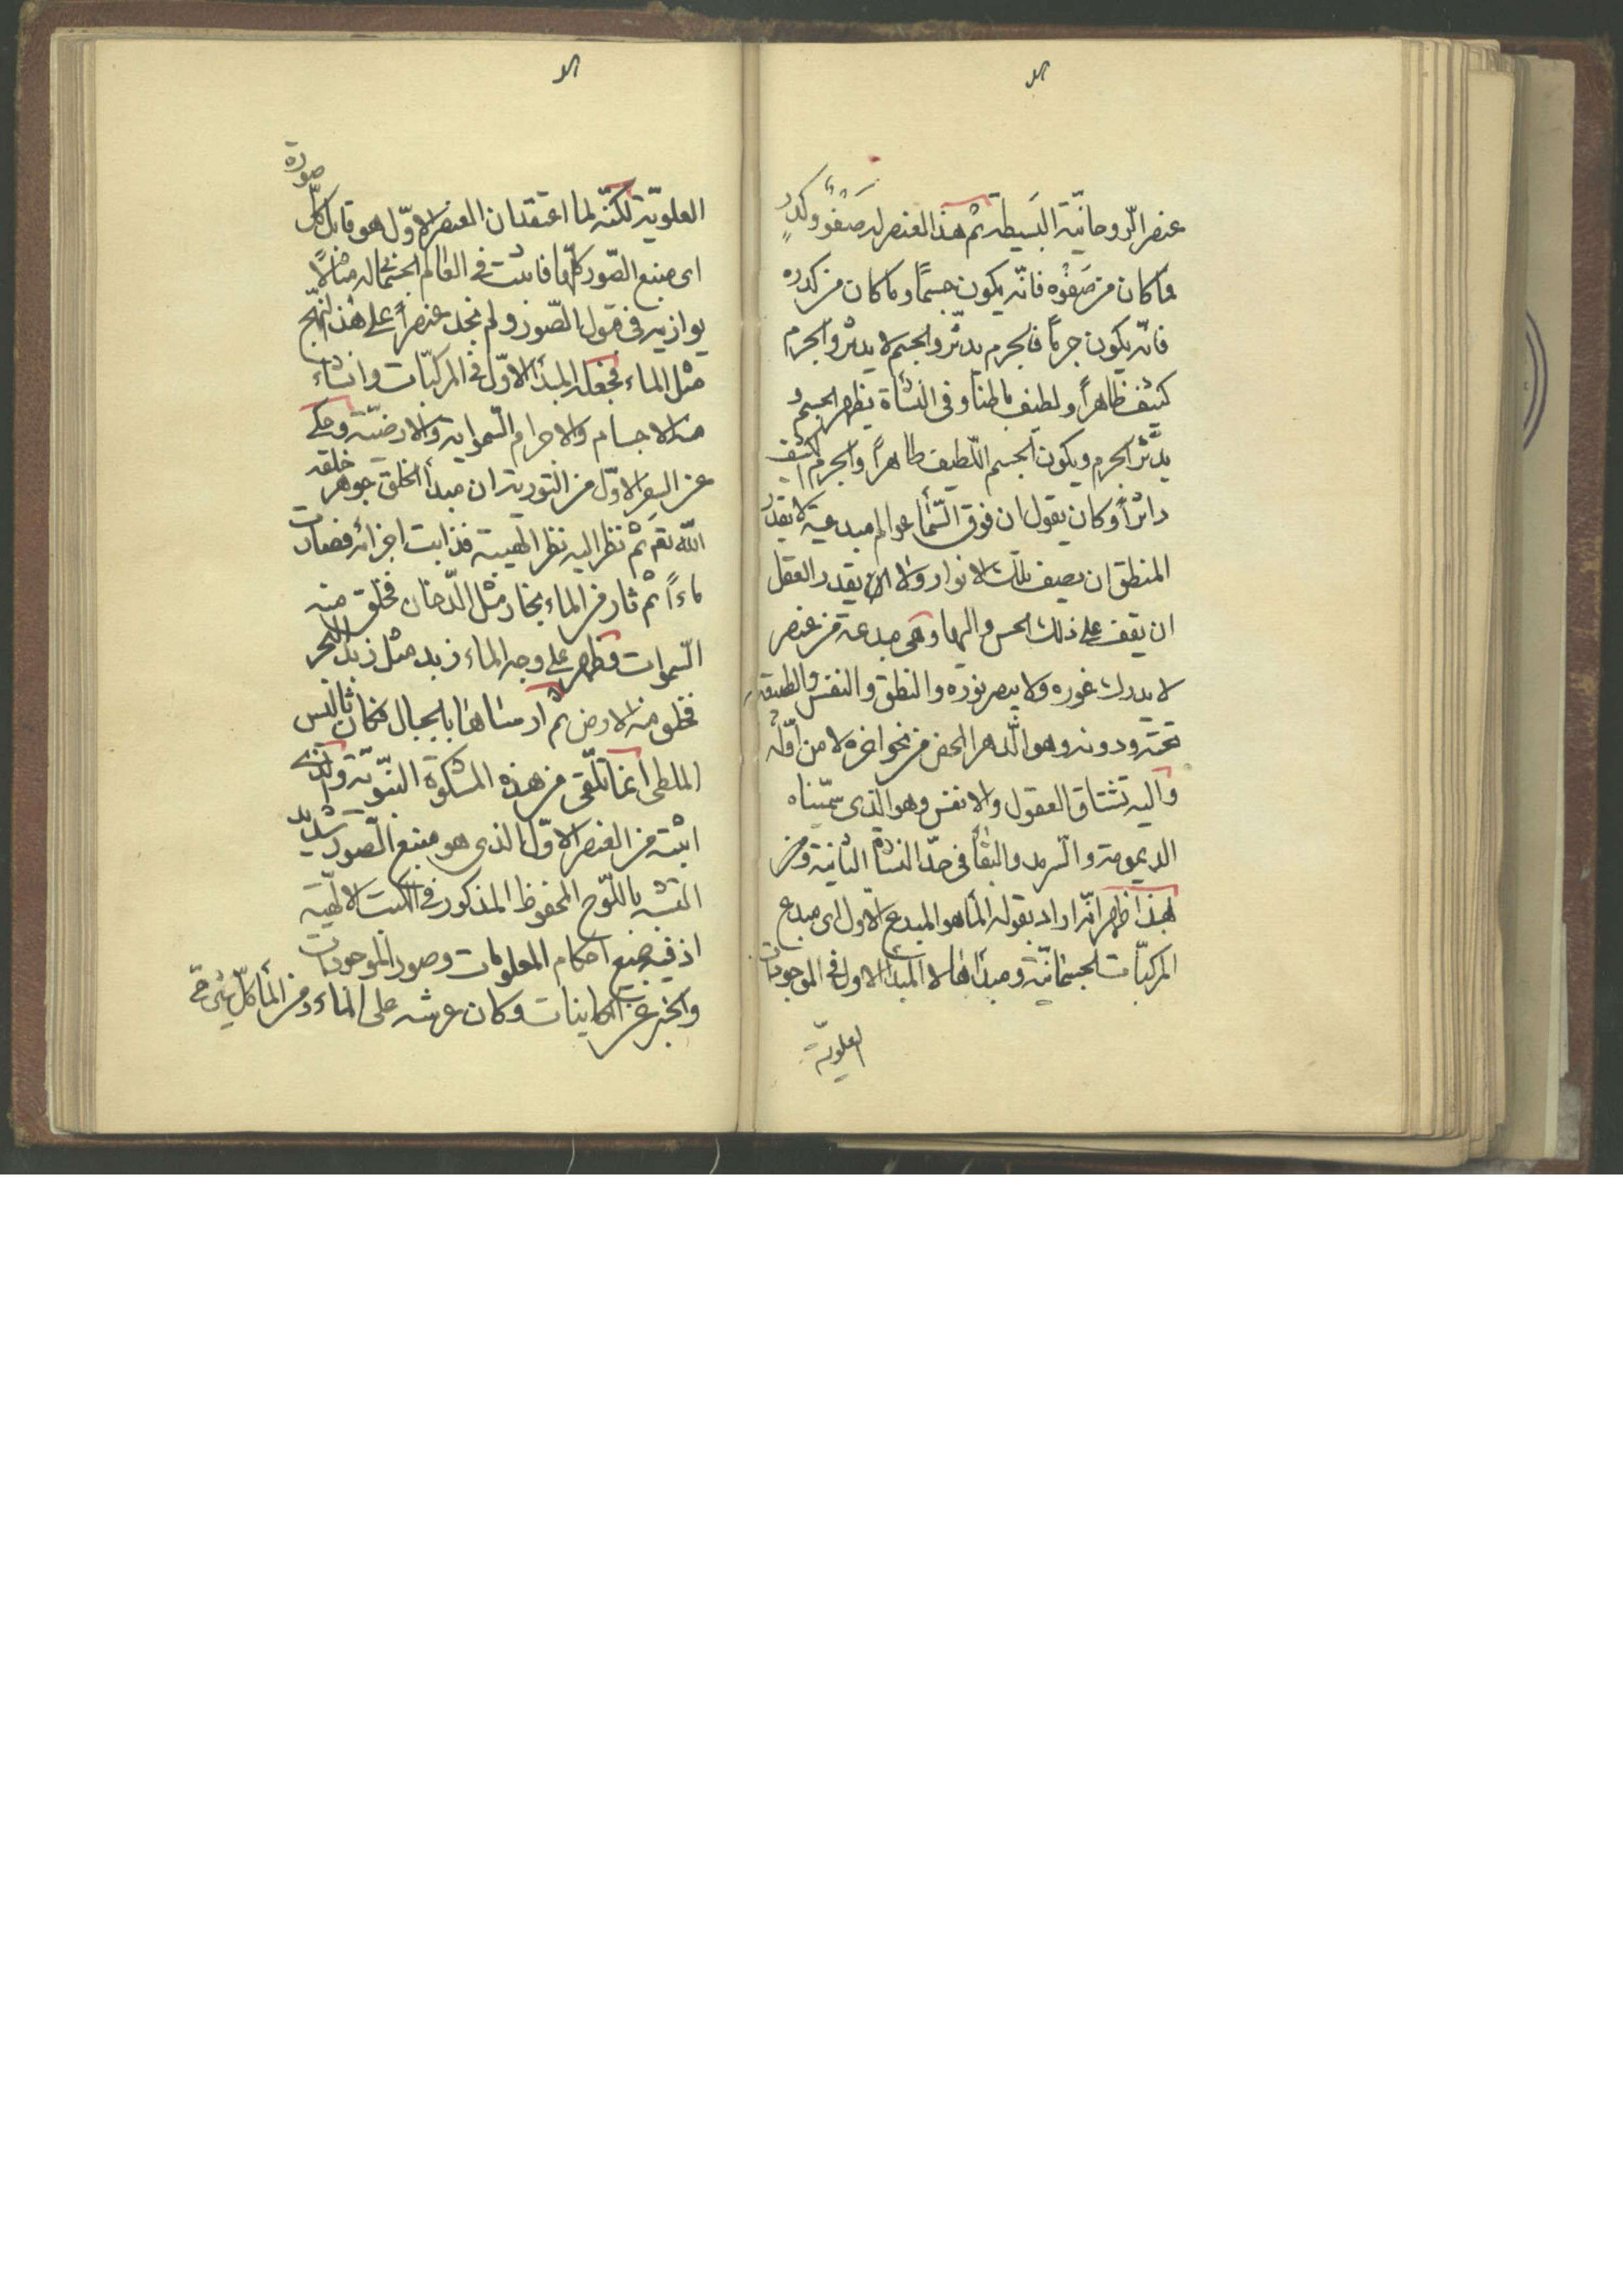 عنصر الرّوحانيّة البَسيطة ثم هذا العنصر له صَفْوٌ وكدرٍ
فما كان من صَفْوه فانّه يكون جسمًا وما كان من كدره
فانّه يكون جرمًا فالجرم يدثر والجسم لا يدثر والجرم
كثيف ظاهراً ولطيف باطنا وفى النشأة يظهر الجسم و
يدَّثر الجرم ويكون الجسم اللّطيف ظاهراً والجرم الكثيف
داثراً وكان يقول ان فوق السّمأ عوالم مبدعة لا يقدر
المنطق ان يصف تلك الانوار ولا يقدر العقل
ان يقف على ذلك الحسن والبهأ وهى مبدعة من عنصر
لا يدرك غوره ولا يبصر نوره والنطق والنفس والطبيعة
تحته ودونه وهو الدّهر المحض من نحو اخره لا من نحو اوّله
واليه تشتاق العقول والانفس وهو الّذى سمّيناه
الديمومة والسّرمد والبقأ فى حدّ النشأة الثانية ومن
بهذا ظهر انّه اراد بقوله المأ هو المبدع الاول اى مبدع
المركبّات الجسمانيّة ومبدأها لا المبدأ الاول فى الموجودات
العلويّة
العلويّة لكنّه لما اعتقد ان العنصر الاوّل هو قابل كلّ
صورة
اى منبع الصّور كلّها فاثبت فى العالم الجسمانى له مثالًا
يوازيه فى قبول الصّور ولم يجد عنصراً على هذا النهج
مثل الماء فجعله المبدأ الاوّل فى المركبّات وانشاء
منه الاجسام والاجرام السّماوية والارضيّة وحكى
عن السفر الاوّل من التورية ان مبدأ الخلق جوهر خلقه
اللّه تع ثم نظر اليه نظر الهيبة فذابت اجزائه فصارت
ماءاً ثم ثار من الماء بخار مثل الدّخان فخلق منه
السّموات وظهر على وجه الماء زبد مثل زبد البحر
فخلق منه الارض ثم ارساها بالجبال فكان ثاليس
الملطى انما تلّقى من هذه المشكوة النبّوية والذى
اثبته من العنصر الاوّل الذى هو منبع الصّور شديد
الشبه باللّوح المحفوظ المذكور فى الكتب الالهّية
اذ فيه جميع احكام المعلومات وصور الموجودات
والخبر عن الكاينات وكان عرشه على الماء ومن المأ كلّ شئ حىّ